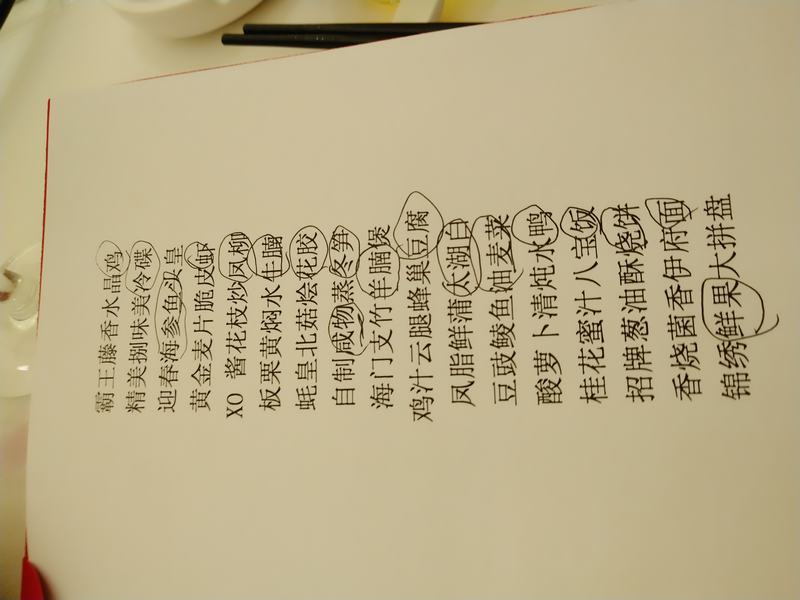 霸王藤香水晶鸡
精美捌味美冷碟
迎春海参鱼头皇
黄金麦片脆皮虾
XO 酱花枝炒凤柳
板栗黄焖水牛腩
蚝皇北菇烩花胶
自制咸物蒸冬笋
海门支竹羊腩煲
鸡汁云腿蜂巢豆腐
凤脂鲜蒲太湖白
豆豉鲮鱼油麦菜
酸萝卜清炖水鸭
桂花蜜汁八宝饭
招牌葱油酥烧饼
香烧菌香伊府面
锦绣鲜果大拼盘